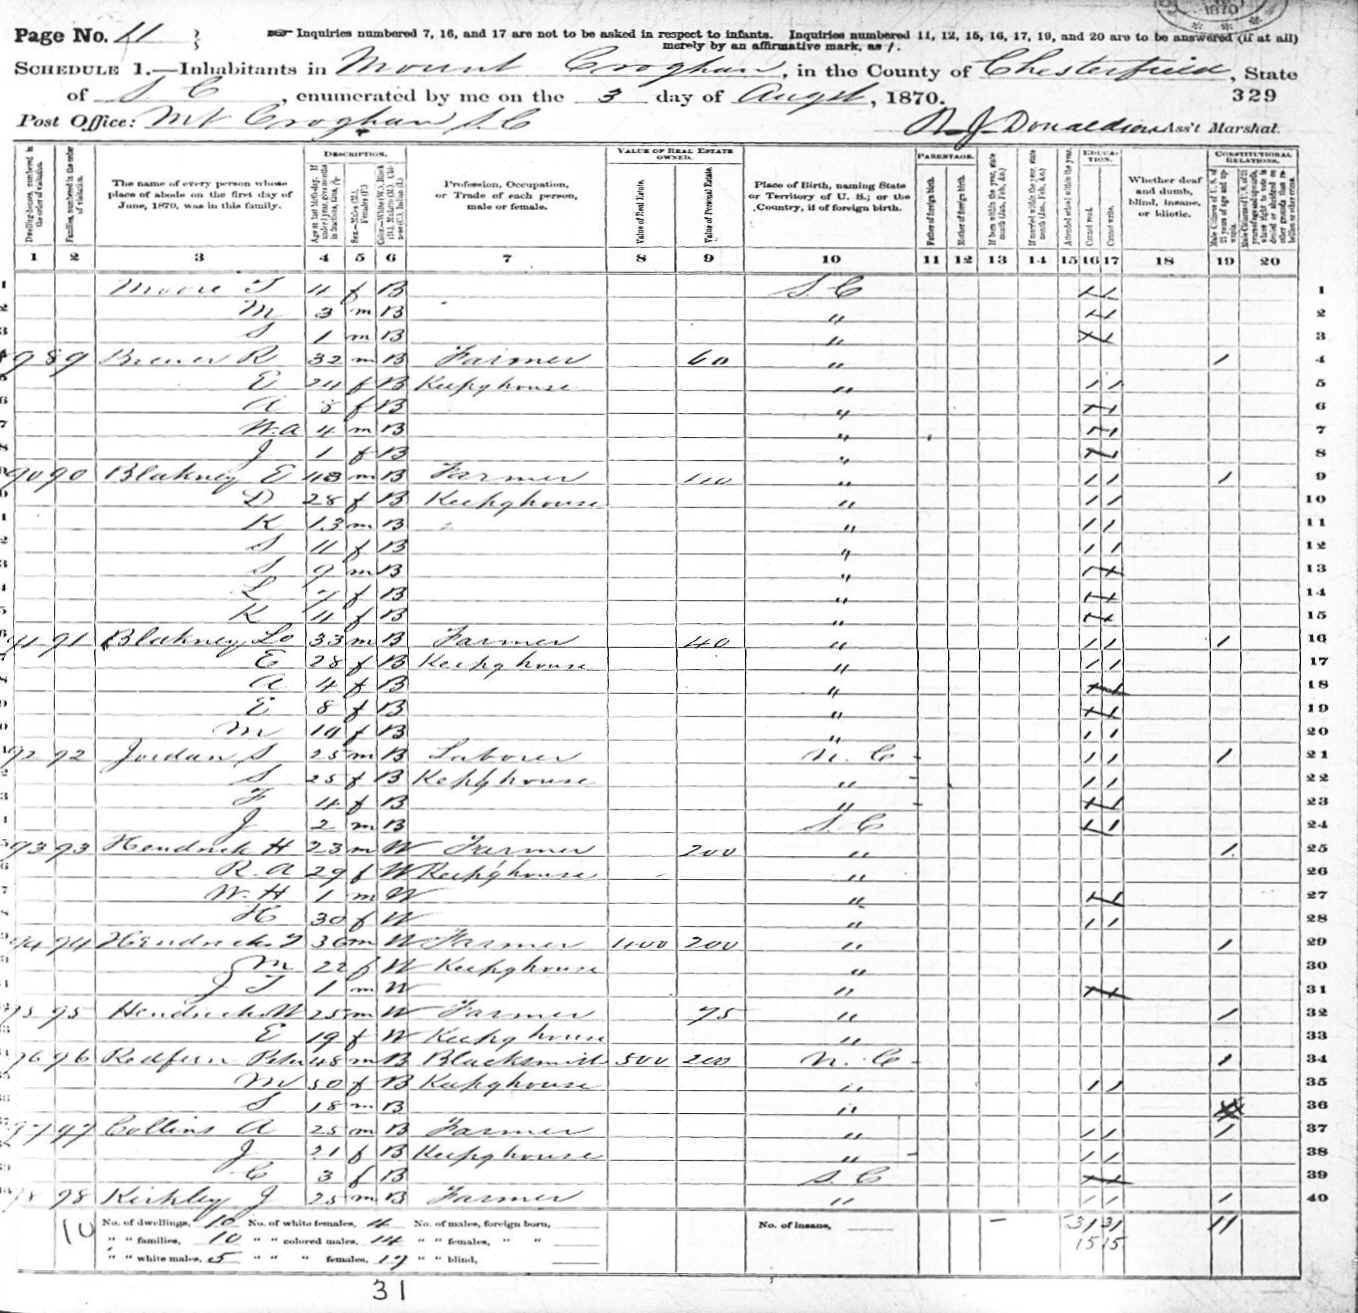 1870
Page No. 11
Inquiries numbered 7, 16, and 17 are not to be asked in respect to infants. Inquiries numbered 11, 12, 15, 16, 17, 19, and 20 are to be answered (if at all)
merely by an affirmative mark, as /.
SCHEDULE 1.—Inhabitants in Mount Croghan, in the County of Chesterfield, State
of S C, enumerated by me on the 3 day of Augst, 1870. 329
Post Office: Mt Croghan S.C Donaldson Ass't Marshal.
DESCRIPTION. VALUE OF REAL ESTATE OWNED. PARENTAGE. EDUCATION. CONSTITUTIONAL RELATIONS.
Dwelling-houses, numbered in the order of visitation.
Families, numbered in the order of visitation.
The name of every person whose place of abode on the first day of June, 1870, was in this family.
Profession, Occupation, or Trade of each person, male or female.
Value of Real Estate.
Value of Personal Estate.
Place of Birth, naming State or Territory of U. S.; or the Country, if of foreign birth.
Father of foreign birth.
Mother of foreign birth.
Attended school within the year.
Cannot read.
Cannot write.
Whether deaf and dumb, blind, insane, or idiotic.
1 2 3 4 5 6 7 8 9 10 11 12 13 14 15 16 17 18 19 20
1 Moore 4 f B S. C / / 1
2 M 3 m B " / / 2
3 S 1 m B " / / 3
89 R 32 m B Farmer 60 " / 4
E 24 f B Keepghouse " / / 5
A 8 f B " / / 6
W. A 4 m B " / / 7
J 1 f B " / / 8
90 90 Blakney E m B Farmer " / / / 9
D 28 f B Keepghouse " / / 10
K 13 m B " / / 11
S 11 f B " / / 12
S 9 m B " / / 13
L 7 f B " / / 14
K 4 f B " / / 15
91 91 Blakney Lo 33 m B Farmer 40 " / / / 16
E 28 f B Keepghouse " / / 17
A 4 f B " / / 18
E 8 f B " / / 19
M f B " / / 20
92 92 Jordan S 25 m B Laborer N. C / / / 21
S 25 f B Keepghouse " / / 22
F 4 f B " / / 23
J 2 m B S. C / / 24
93 93 Hendrick H 23 m W Farmer 200 " / 25
R. A 29 f W Keepghouse " 26
W. H 1 m W " / / 27
H 30 f W " / / 28
94 94 Hendrick 36 m W Farmer 200 " / 29
M 22 f W Keepghouse " 30
J T 1 m W " / / 31
95 95 Hendrick W 25 m W Farmer 75 " / 32
E 19 f W Keepg house " 33
96 96 Redfern Peter 48 m B Blacksmith 500 200 N. C / 34
M 50 f B Keepghouse " / / 35
S 18 m B " 36
97 97 Collins A 25 m B Farmer " / / / 37
J 21 f B Keepghouse " / / 38
C 3 f B S C / / 39
98 98 Kirkley J 25 m B Farmer " / / / 40
10 No. of dwellings, 10 No. of white females, 4 No. of males, foreign born, No. of insane, 31 31 11
" " families, 10 " " colored males, 14 " " females, " " 15 15
" " white males, 5 " " " females, 17 " " blind,
31